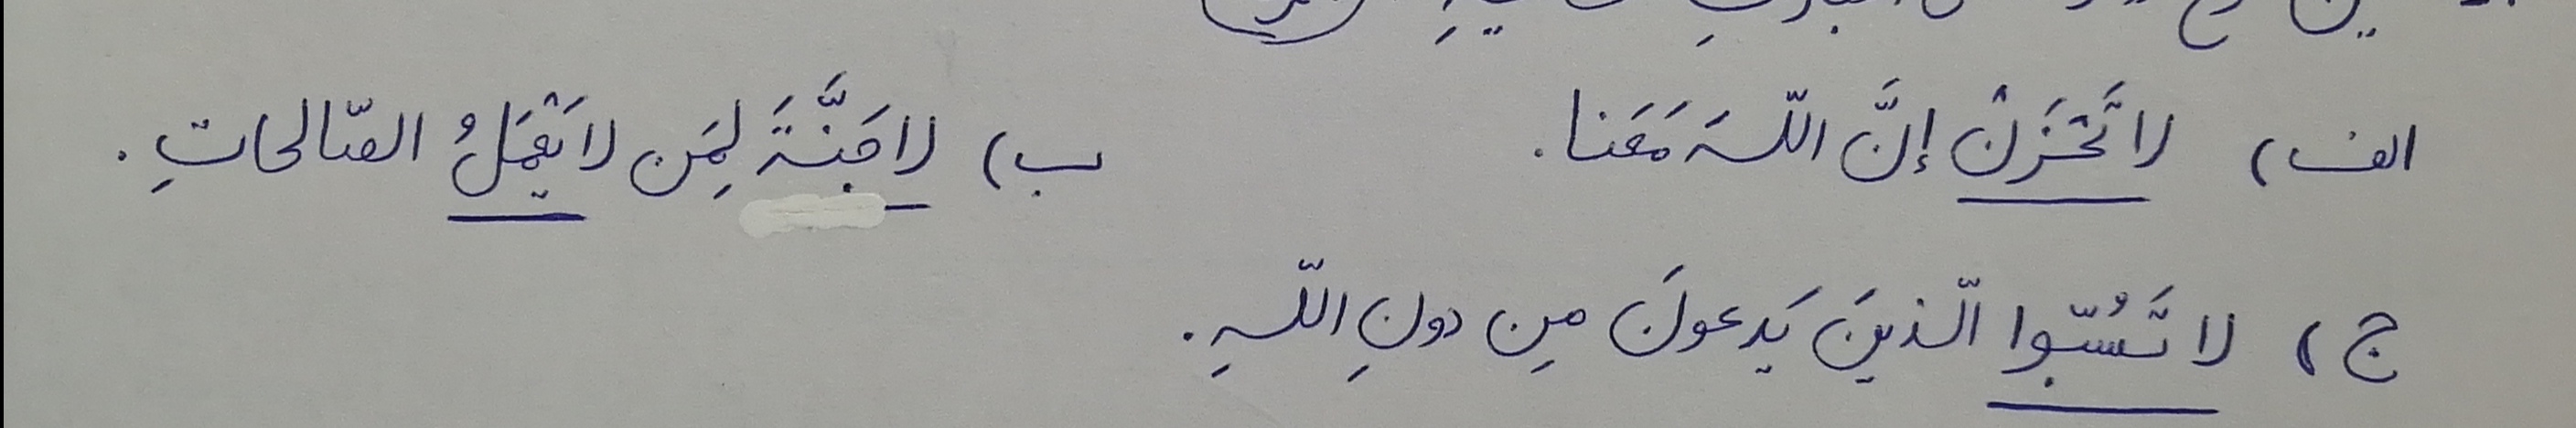 الف) لا تَحْزَنْ إنَّ اللّهَ مَعَنا. ب) لا جَنَّةَ لِمَن لا يَعْمَلُ الصّالحاتِ.
ج) لا تَسُبّوا الّذينَ يَدعونَ مِن دونِ اللّهِ.